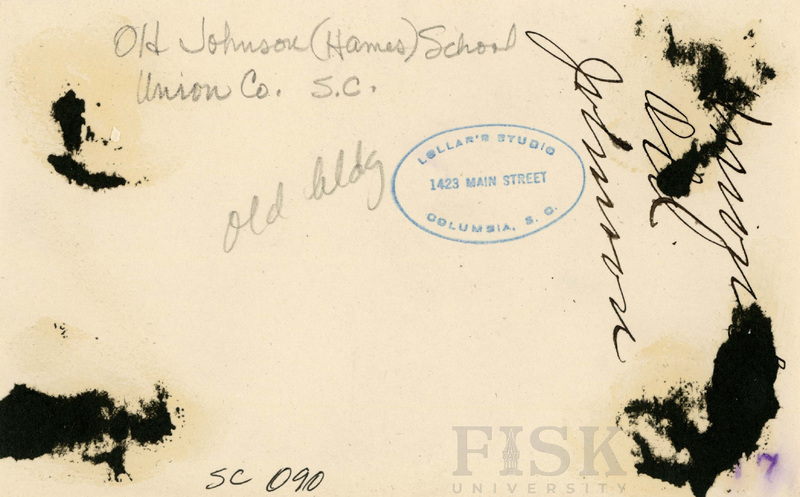 Old Johnson (Hames) School
Union Co. S.C.
old bldg
LOLLAR'S STUDIO
1423 MAIN STREET
COLUMBIA, S. C.
Old
Johnson
SC 090
FISK
UNIVERSITY
7